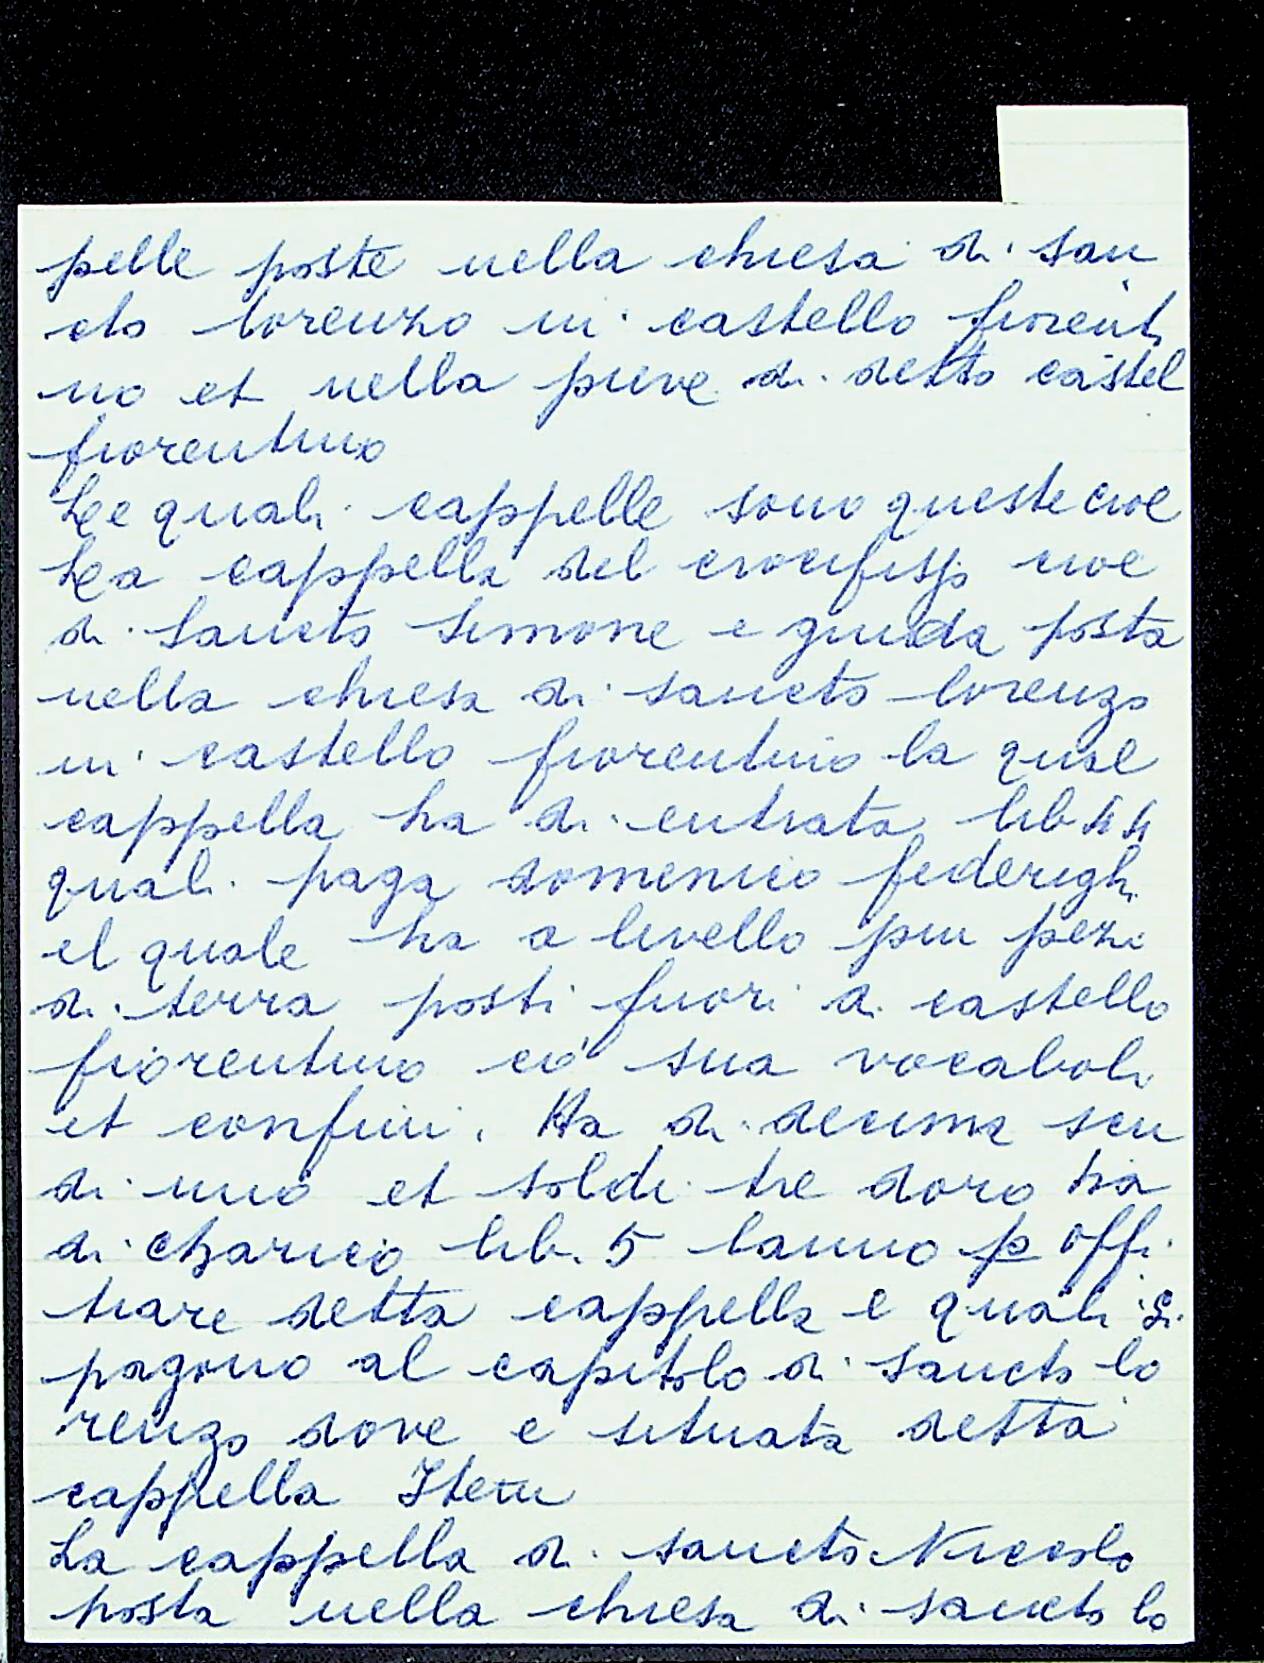 pelle poste nella chiesa di san
cto lorenzo in castello fiorenti
no et nella pieve di detto castel
fiorentino
Le quali cappelle sono queste cioe
La cappella del crocifisso cioe
di Sancto Simone e giuda posta
nella chiesa di sancto lorenzo
in castello fiorentino la quale
cappella ha di entrata lib 44
quali paga domenico federighi
el quale ha a livello piu pezi
di terra posti fuori di castello
fiorentino co sua vocaboli
et confini. Ha di decima scu
di uno et soldi tre doro ha
di charico lib. 5 lanno p offi
tiare detta cappella e quali si
pagono al capitolo di Sancto lo
renzo dove e situata detta
cappella Item
La cappella di sancto Niccolo
posta nella chiesa di sancto lo